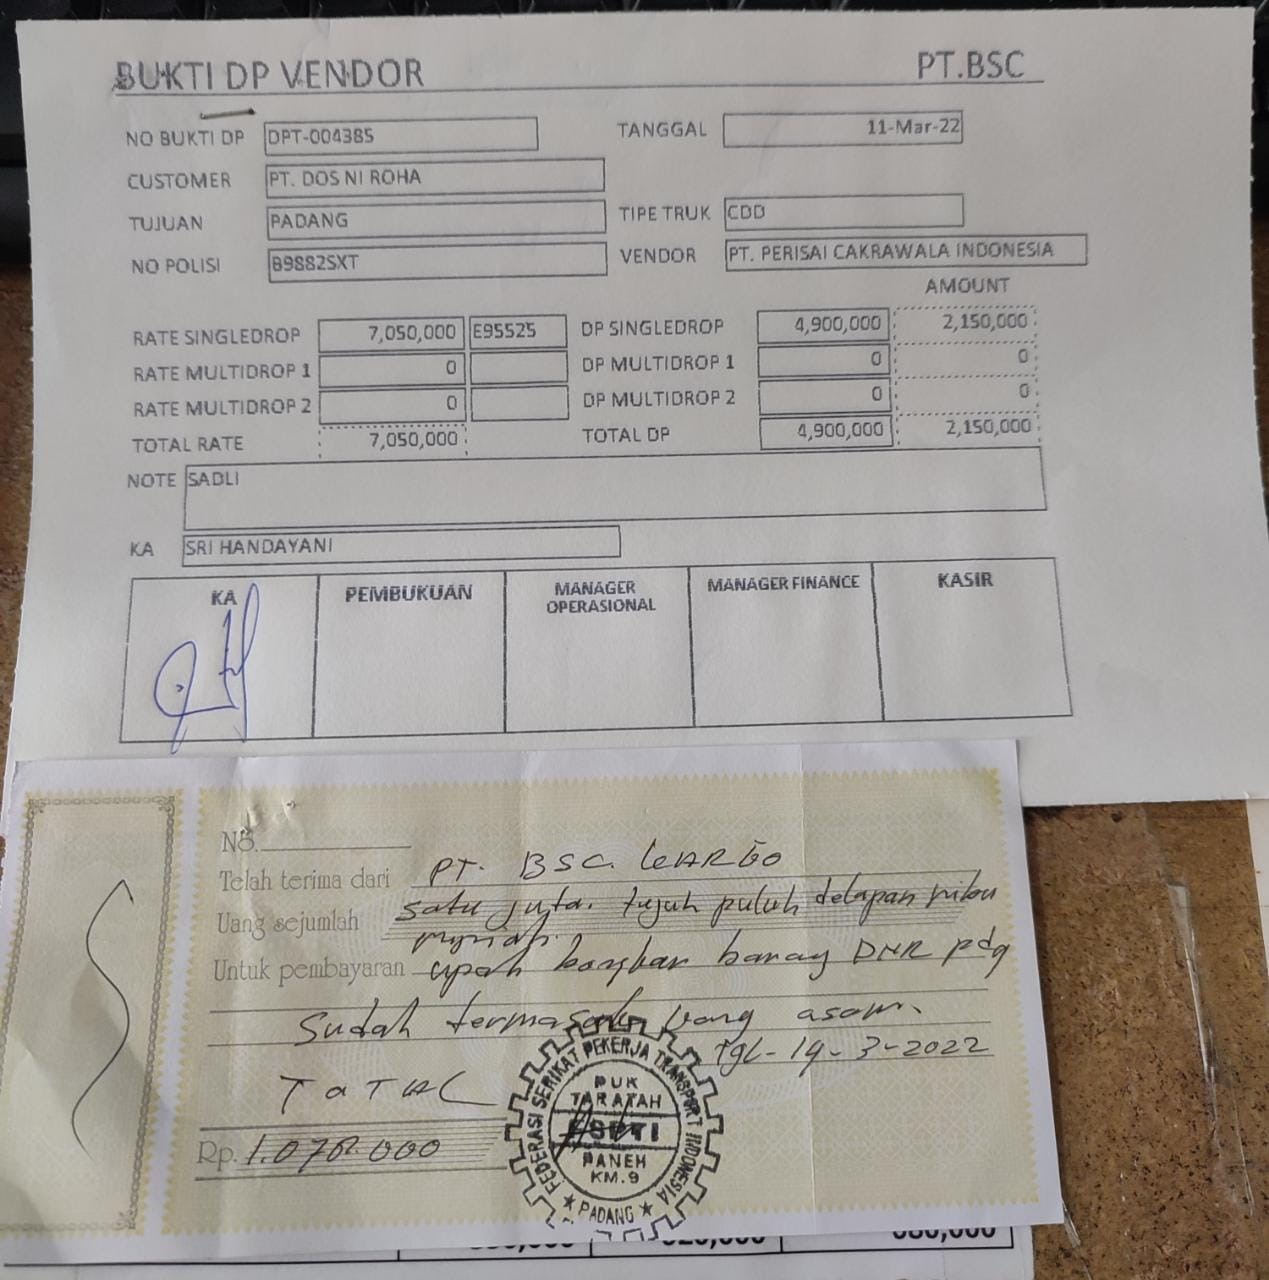 BUKTI DP VENDOR PT.BSC
NO BUKTI DP DPT-004385 TANGGAL 11-Mar-22
CUSTOMER PT. DOS NI ROHA
TUJUAN PADANG TIPE TRUK CDD
NO POLISI B9882SXT VENDOR PT. PERISAI CAKRAWALA INDONESIA
AMOUNT
RATE SINGLEDROP 7,050,000 E95525 DP SINGLEDROP 4,900,000 2,150,000
RATE MULTIDROP 1 0 DP MULTIDROP 1 0 0
RATE MULTIDROP 2 0 DP MULTIDROP 2 0 0
TOTAL RATE 7,050,000 TOTAL DP 4,900,000 2,150,000
NOTE SADLI
KA SRI HANDAYANI
KA PEMBUKUAN MANAGER OPERASIONAL MANAGER FINANCE KASIR
No.
Telah terima dari PT. BSC. CARGO
Uang sejumlah satu juta. tujuh puluh delapan ribu
rupiah.
Untuk pembayaran upah bongkar barang DNR pdg
Sudah termasuk uang asam.
Tgl-14-3-2022
TOTAL
Rp. 1.078.000
FEDERASI SERIKAT PEKERJA TRANSPORT INDONESIA
PUK
TARATAH
FSPTI
PANEH
KM.9
★ PADANG ★